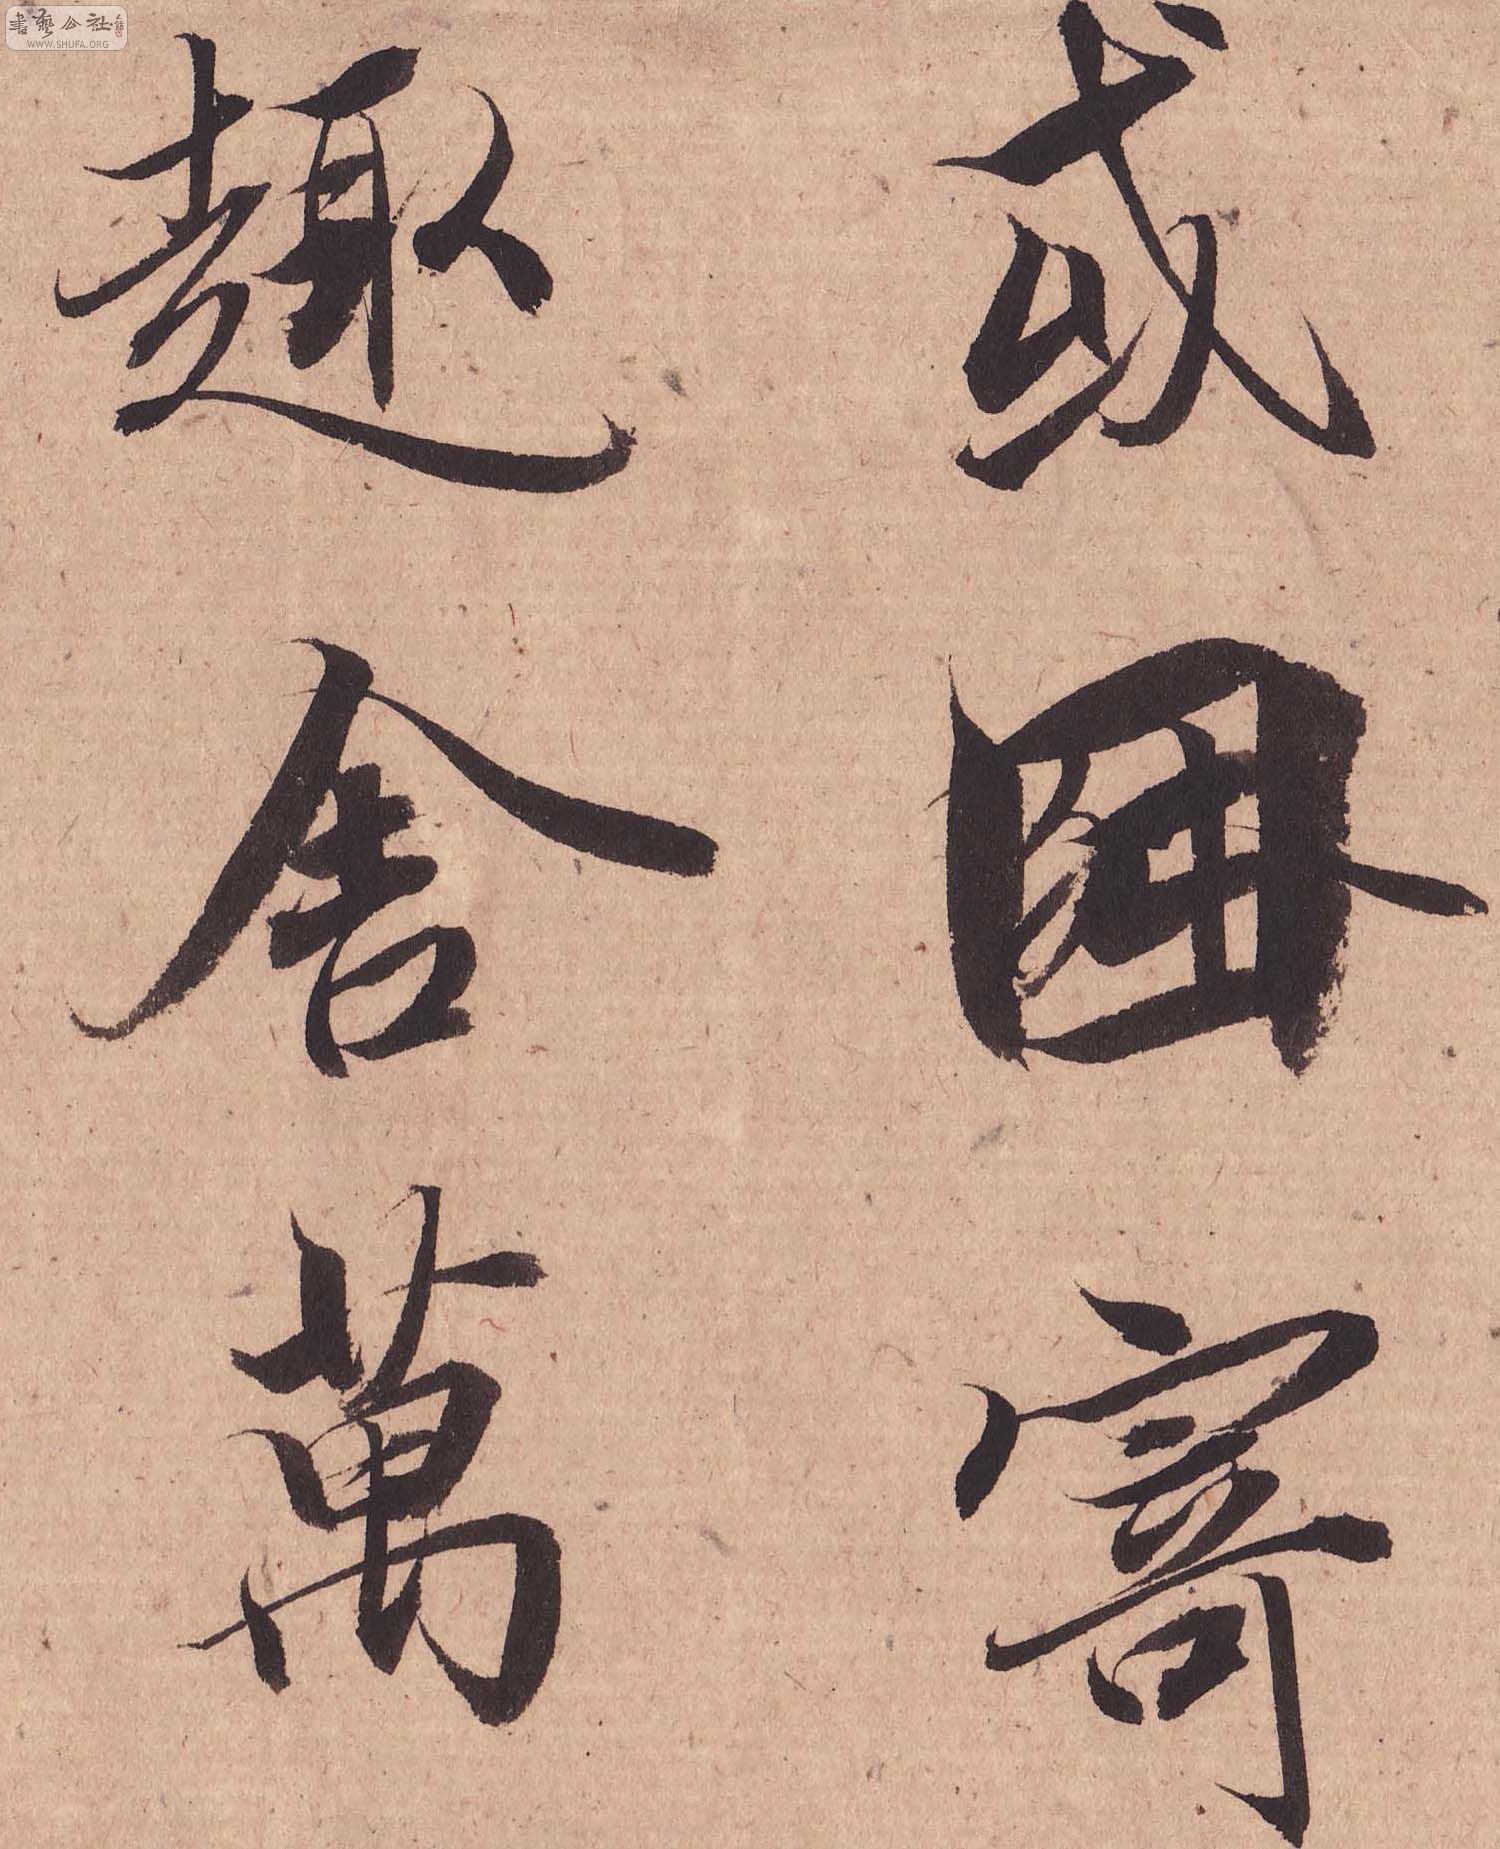 或因寄
趣舍萬
書藝公社
WWW.SHUFA.ORG